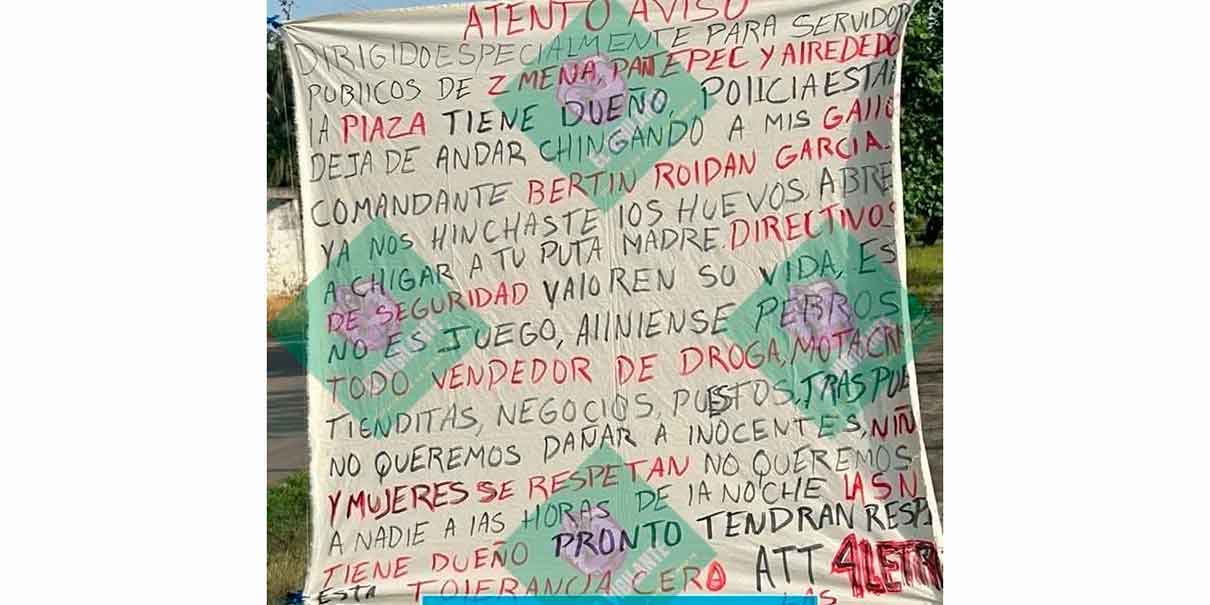 ATENTO AVISO
DIRIGIDO ESPECIALMENTE PARA SERVIDOR
PUBLICOS DE Z MENA, PANTEPEC Y AIREDEDO
LA PLAZA TIENE DUEÑO, POLICIA ESTA
DEJA DE ANDAR CHINGANDO A MIS GALLO
COMANDANTE BERTIN ROLDAN GARCIA.
YA NOS HINCHASTE LOS HUEVOS, ABRE
A CHIGAR A TU PUTA MADRE. DIRECTIVOS
DE SEGURIDAD VALOREN SU VIDA, ES
NO ES JUEGO, ALINIENSE PERROS
TODO VENDEDOR DE DROGA, MOTA CRIS
TIENDITAS, NEGOCIOS, PUESTOS, TRASPUE
NO QUEREMOS DAÑAR A INOCENTES, NIÑ
Y MUJERES SE RESPETAN NO QUEREMOS
A NADIE A LAS HORAS DE LA NOCHE LAS N
TIENE DUEÑO PRONTO TENDRAN RESP
ESTA TOLERANCIA CERO ATT 4LETR
LAS
EL VIGILANTE